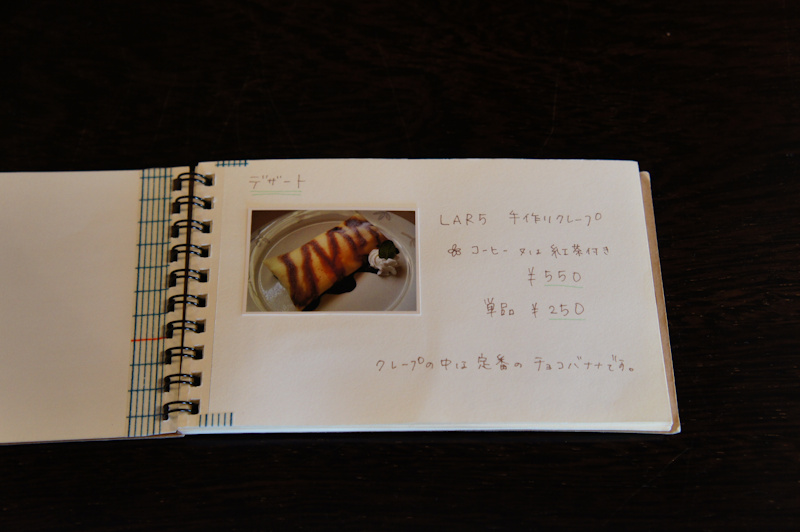 デザート
LAR5 手作りクレープ
コーヒー 又は 紅茶付き
¥550
単品 ¥250
クレープの中は 定番の チョコバナナです。